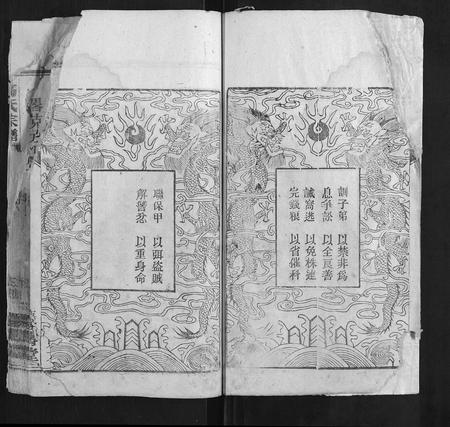 訓子弟 以禁非為
息爭訟 以全良善
誡窩逃 以免株連
完錢糧 以省催科
聯保甲 以弭盜賊
解讐忿 以重身命